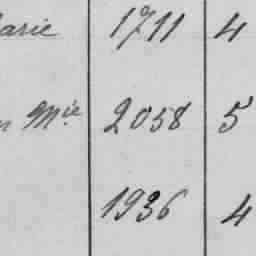 arie 1711 4
n Mie 2058 5
1936 4